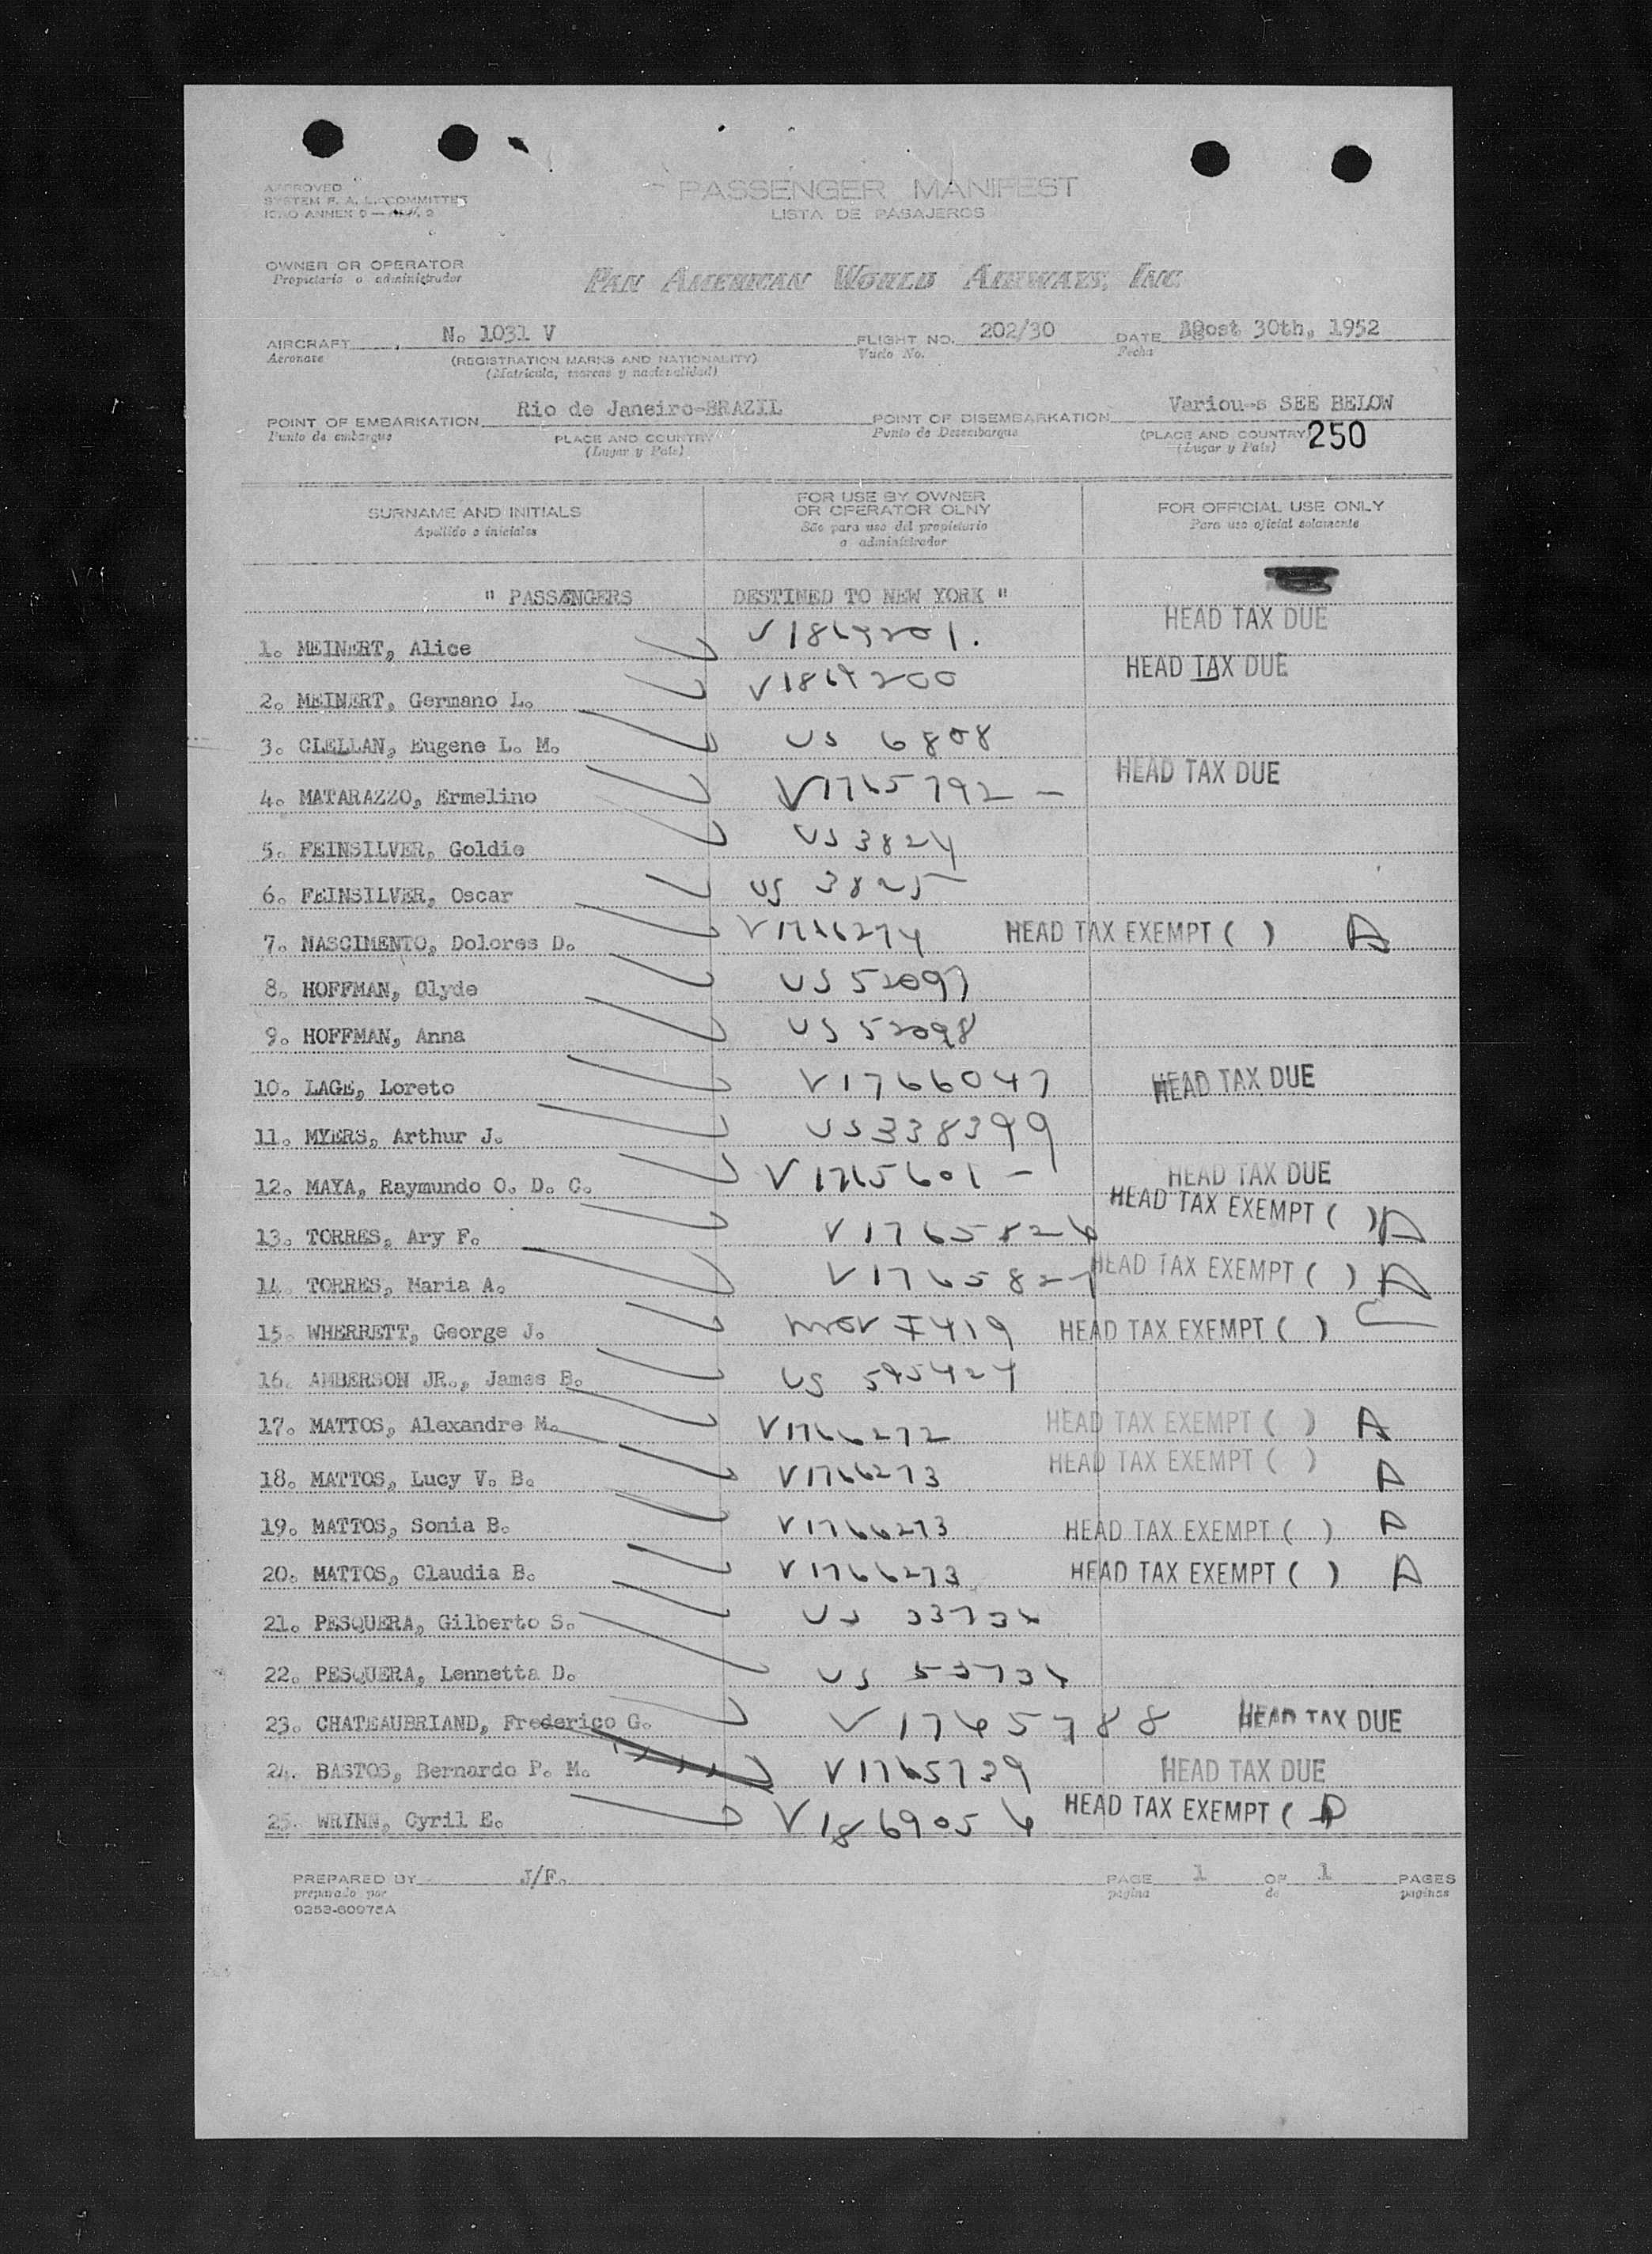 APPROVED
SYSTEM F. A. L. COMMITTEE
ICAO ANNEX 9
PASSENGER MANIFEST
LISTA DE PASAJEROS
OWNER OR OPERATOR
Propietario o administrador
PAN AMERICAN WORLD AIRWAYS, INC.
AIRCRAFT No 1031 V FLIGHT NO. 202/30 DATE 30th, 1952
Aeronave (REGISTRATION MARKS AND NATIONALITY) Vuelo No. Fecha
(Matricula, marcas y nacionalidad)
POINT OF EMBARKATION Rio de Janeiro-BRAZIL POINT OF DISEMBARKATION Variou-s SEE BELOW
Punto de embarque PLACE AND COUNTRY Punto de Desembarque (PLACE AND COUNTRY) 250
(Lugar y País) (Lugar y País)
SURNAME AND INITIALS FOR USE BY OWNER OR OPERATOR OLNY FOR OFFICIAL USE ONLY
Apellido e iniciales São para uso del propietario o administrador Para uso oficial solamente
" PASSÆNGERS DESTINED TO NEW YORK "
HEAD TAX DUE
1. MEINERT, Alice V1869201.
HEAD TAX DUE
2. MEINERT, Germano L. V1869200
3. CLELLAN, Eugene L. M. US 6808
4. MATARAZZO, Ermelino V1765792 – HEAD TAX DUE
5. FEINSILVER, Goldie US 3824
6. FEINSILVER, Oscar US 3825
7. NASCIMENTO, Dolores D. V1766274 HEAD TAX EXEMPT ( ) A
8. HOFFMAN, Clyde US 52097
9. HOFFMAN, Anna US 52098
10. LAGE, Loreto V1766047 HEAD TAX DUE
11. MYERS, Arthur J. US 338399
12. MAYA, Raymundo O. D. C. V1765601 – HEAD TAX DUE
13. TORRES, Ary F. V1765826 HEAD TAX EXEMPT ( ) A
14. TORRES, Maria A. V1765827 HEAD TAX EXEMPT ( ) A
15. WHERRETT, George J. 7419 HEAD TAX EXEMPT ( ) C
16. AMBERSON JR., James B. US 595424
17. MATTOS, Alexandre M. V1766272 HEAD TAX EXEMPT ( ) A
18. MATTOS, Lucy V. B. V1766273 HEAD TAX EXEMPT ( ) A
19. MATTOS, Sonia B. V1766273 HEAD TAX EXEMPT ( ) A
20. MATTOS, Claudia B. V1766273 HEAD TAX EXEMPT ( ) A
21. PESQUERA, Gilberto S. US
22. PESQUERA, Lennetta D. US
23. CHATEAUBRIAND, Frederico G. V1765788 HEAD TAX DUE
24. BASTOS, Bernardo P. M. V1765739 HEAD TAX DUE
25. WRYNN, Cyril E. V1869056 HEAD TAX EXEMPT (
PREPARED BY J/F. PAGE 1 OF 1 PAGES
preparado por pagina de paginas
9253-60975A